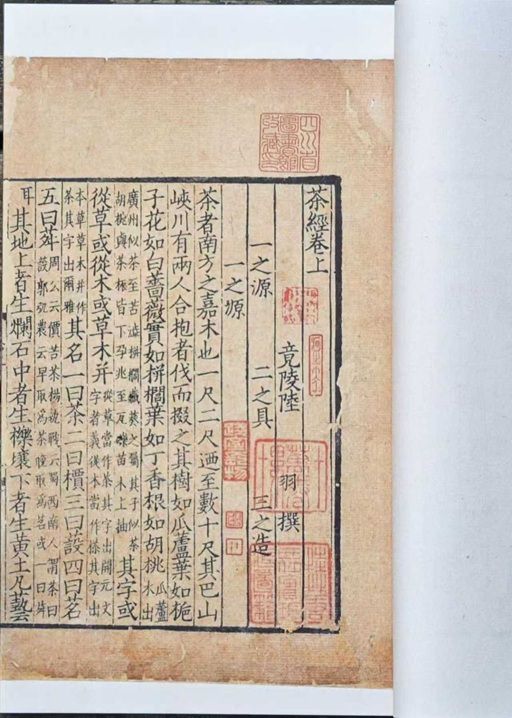 四川省圖書館收藏印
茶經卷上
竟陵陸 羽 撰
一之源 二之具 三之造
一之源
茶者南方之嘉木也一尺二尺迺至數十尺其巴山
峽川有兩人合抱者伐而掇之其樹如瓜蘆葉如梔
子花如白薔薇實如栟櫚葉如丁香根如胡桃 瓜蘆木出
廣州似茶至苦澁栟櫚蒲葵之屬其子似茶
胡桃與茶根皆下孕兆至瓦礫苗木上抽 其字或
從草或從木或草木并 從草當作茶其字出開元文
字者義從木當作㭨其字出
本草草木并作
荼其字出爾雅 其名一曰茶二曰檟三曰蔎四曰茗
五曰荈 周公云檟苦茶楊執戟云蜀西南人謂茶曰
蔎郭弘農云早取為茶晚取為茗或一曰荈
耳其地上者生爛石中者生櫟壤下者生黃土凡藝